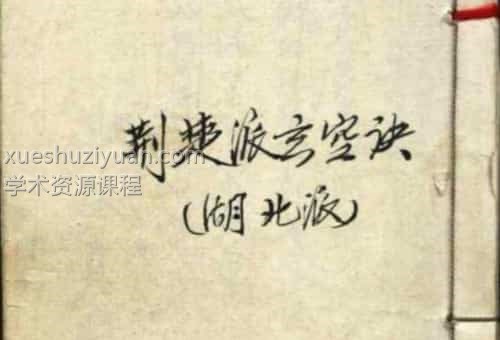 荆楚派玄空诀
xueshuziyuan.com
学术资源课程
(湖北派)